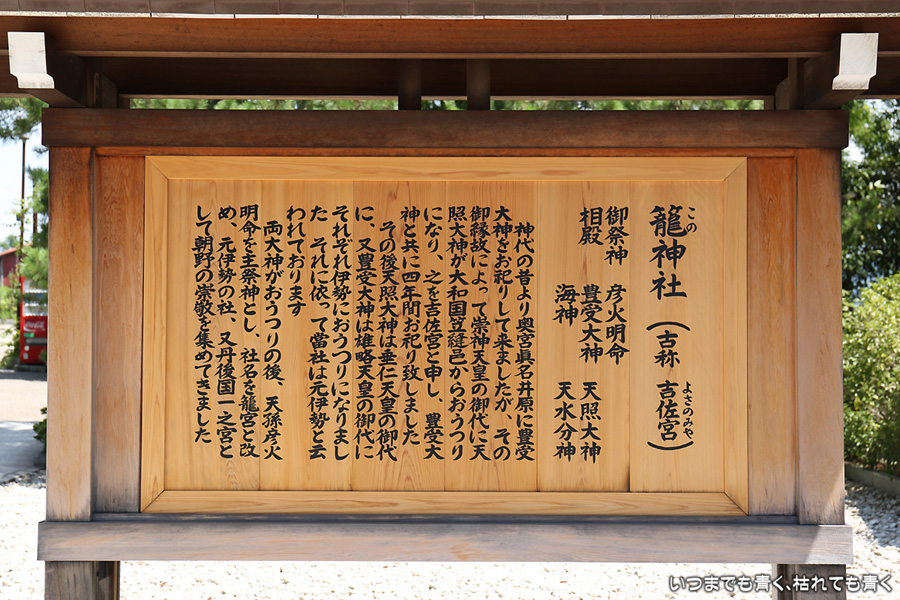 籠神社（古称 吉佐宮）
この
よさのみや
御祭神 彦火明命
相殿 豊受大神 天照大神
海神 天水分神
神代の昔より奥宮眞名井原に豊受
大神をお祀りして来ましたが、その
御縁故によって崇神天皇の御代に天
照大神が大和国笠縫邑からおうつり
になり、之を吉佐宮と申し、豊受大
神と共に四年間お祀り致しました
その後天照大神は垂仁天皇の御代
に、又豊受大神は雄略天皇の御代に
それぞれ伊勢におうつりになりまし
た それに依って當社は元伊勢と云
われております
両大神がおうつりの後、天孫彦火
明命を主祭神とし、社名を籠宮と改
め、元伊勢の社、又丹後国一之宮と
して朝野の崇敬を集めてきました
いつまでも青く、枯れても青く